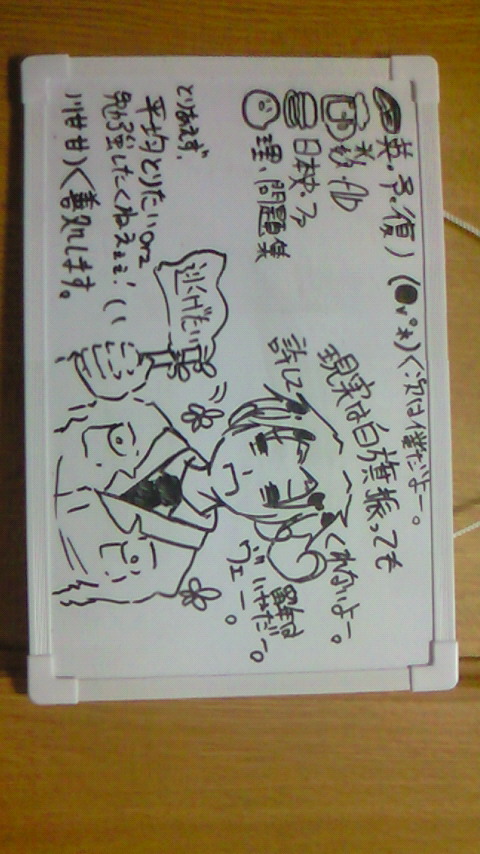 英・予・復) (●v°*)<次は僕だよー。
数・Ab
日本史・ファ
理・問題集
現実は白旗振っても
くれないよー。
許して
逃げたい
留年は
いやだー。
ヴェー。
とりあえず、
平均とりたいorz
勉強したくねぇぇぇ!
川廿廿)<善処します。